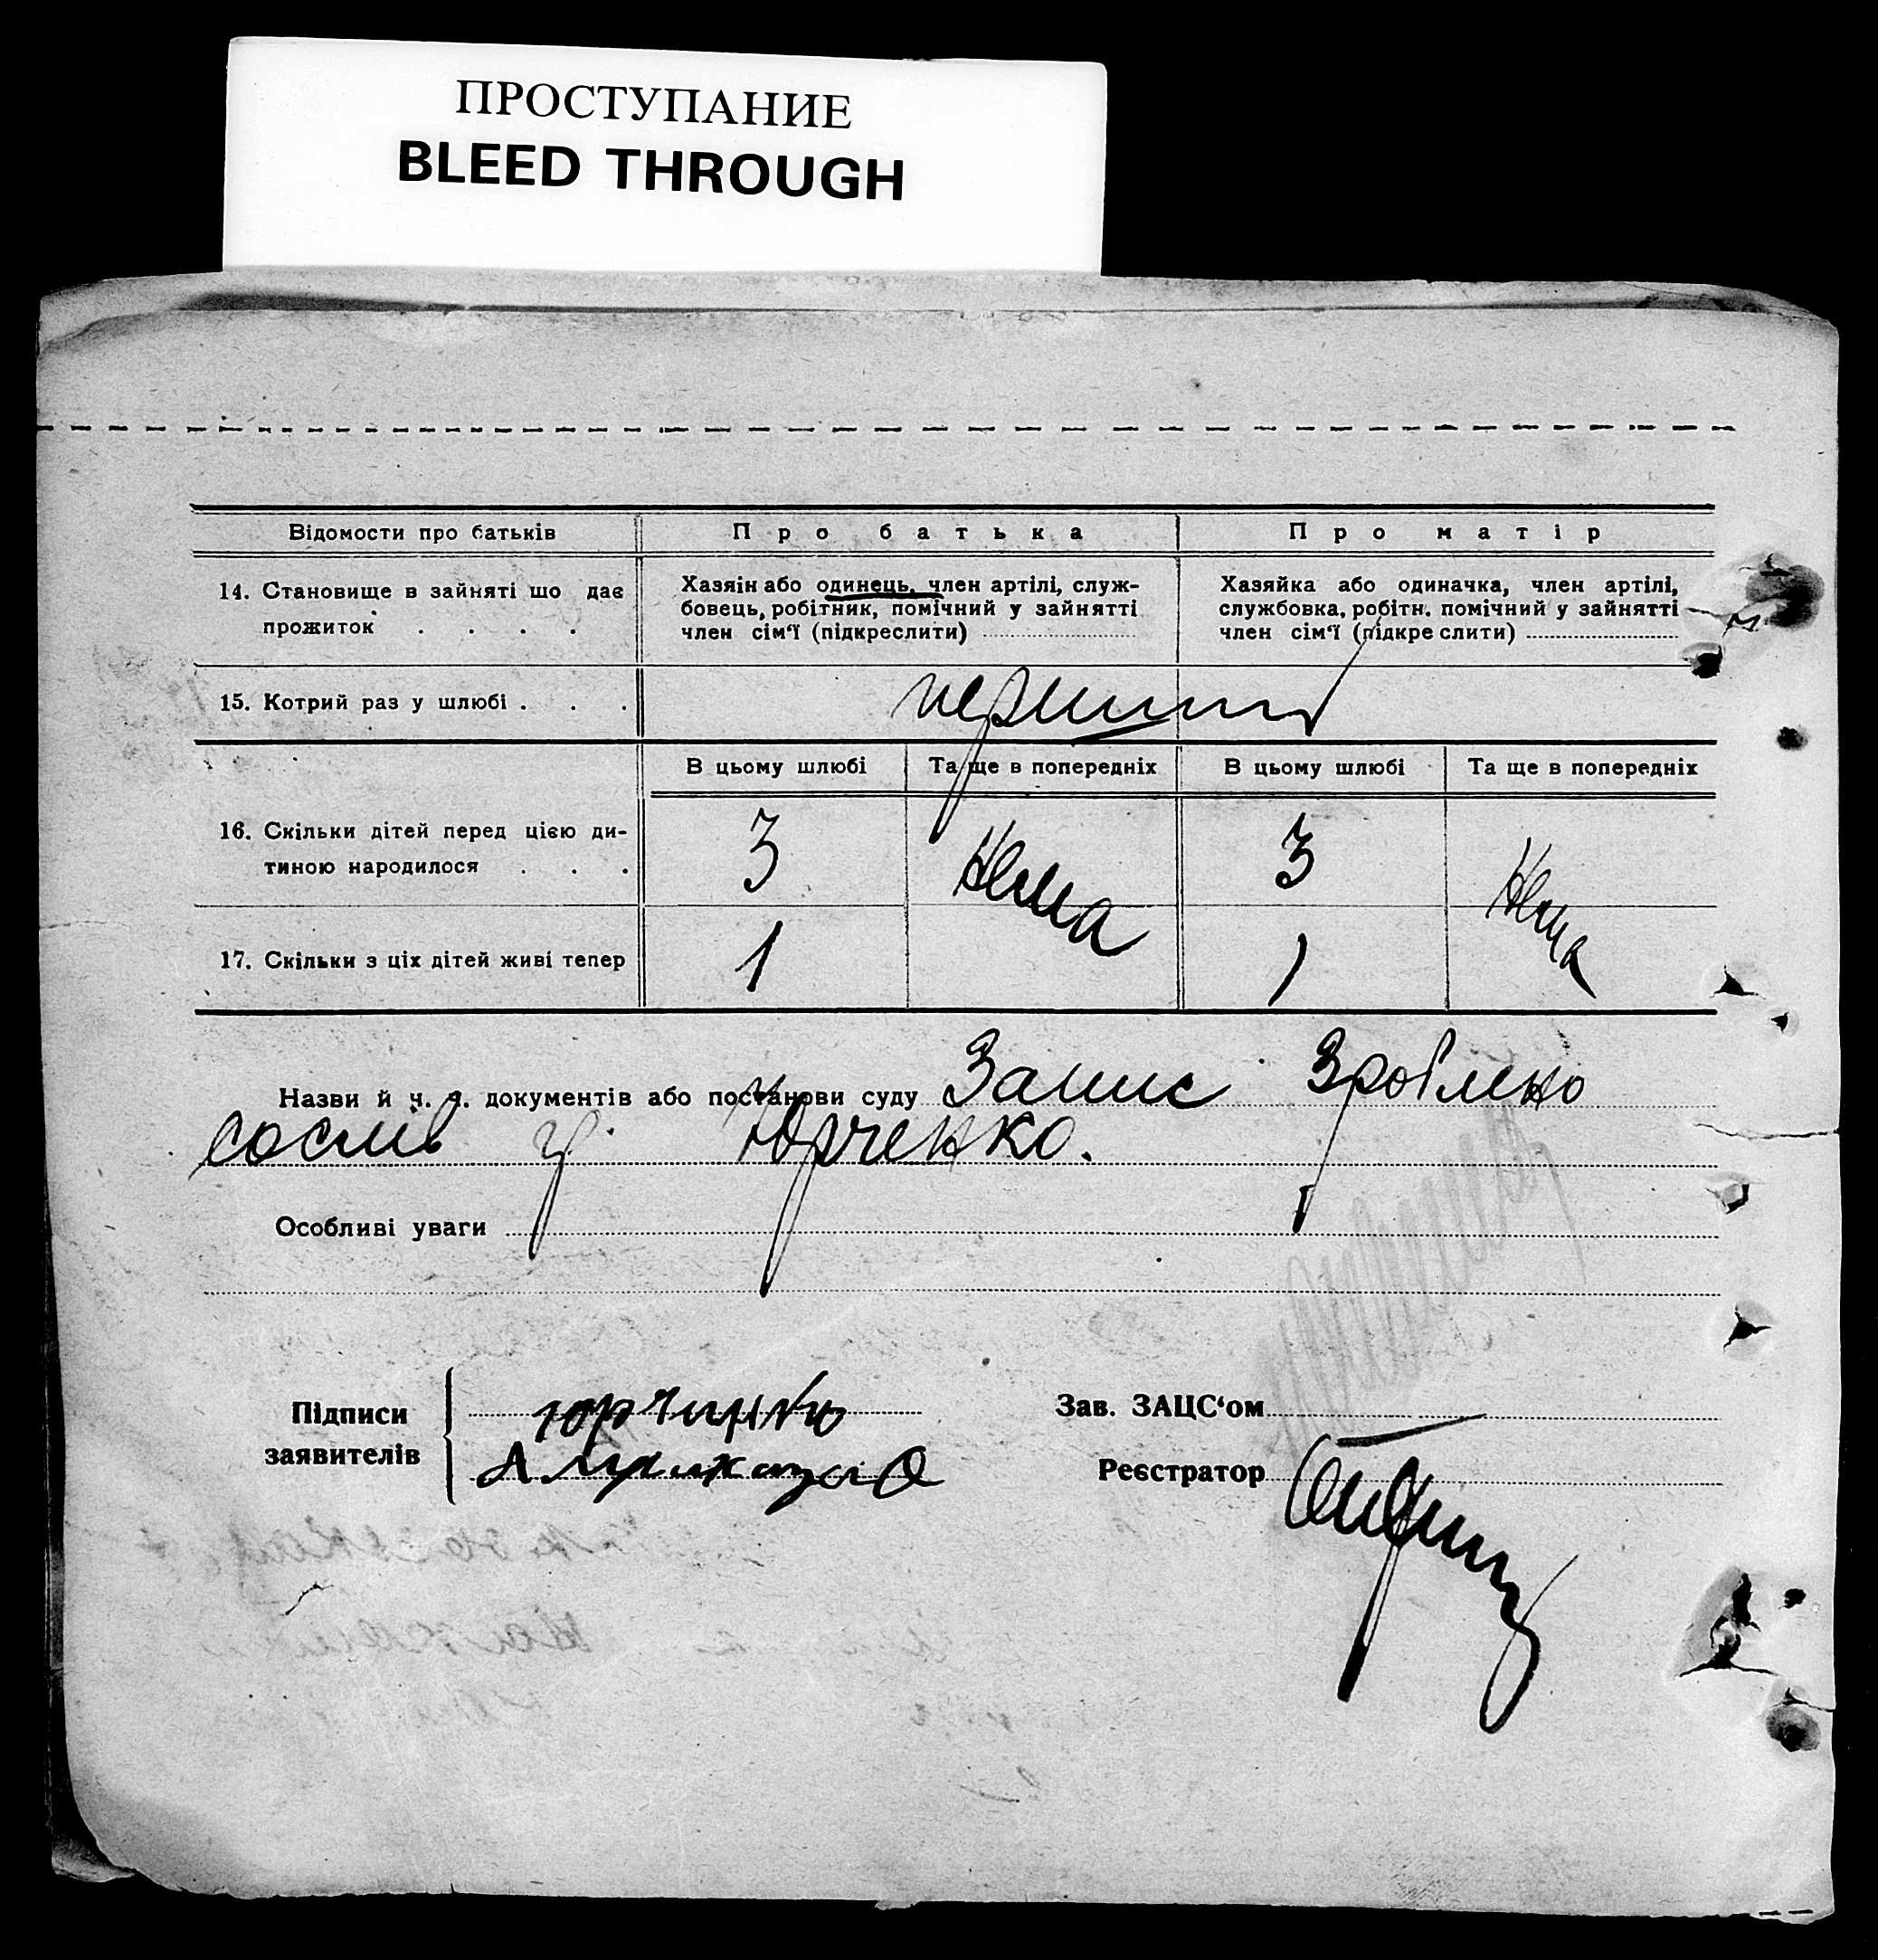 ПРОСТУПАНИЕ
BLEED THROUGH
Відомости про батьків
Про батька
Про матір
14. Становище в зайняті що дає
прожиток . . . .
Хазяін або одинець, член артілі, служ-
бовець, робітник, помічний у зайнятті
член сім‘ї (підкреслити)
Хазяйка або одиначка, член артілі,
службовка, робітн. помічний у зайнятті
член сім‘ї (підкреслити)
15. Котрий раз у шлюбі . . .
перший
В цьому шлюбі
Та ще в попередніх
В цьому шлюбі
Та ще в попередніх
16. Скільки дітей перед цією ди-
тиною народилося . . .
3
Нема
3
Нема
17. Скільки з ціх дітей живі тепер
1
1
Назви й ч. ч. документів або постанови суду Запис Зроблено
зо слів гр. Юрченко.
Особливі уваги
Підписи
заявителів
Зав. ЗАЦС‘ом
Реєстратор